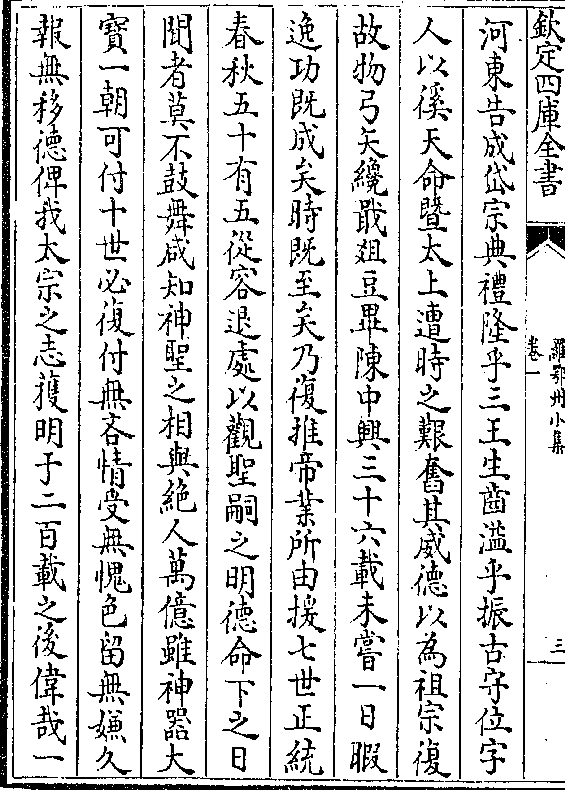 欽定四庫全書
羅鄂州小集
卷一
三
河東告成岱宗典禮隆乎三王生齒溢乎振古守位字
人以徯天命暨太上遭時之艱奮其威德以為祖宗復
故物弓矢纔戢俎豆畢陳中興三十六載未嘗一日暇
逸功既成矣時既至矣乃復推帝業所由援七世正統
春秋五十有五從容退處以觀聖嗣之明德命下之日
聞者莫不鼓舞咸知神聖之相與絶人萬億雖神器大
寳一朝可付十世必復付無吝情受無愧色留無嫌久
報無移德俾我太宗之志獲明于二百載之後偉哉一